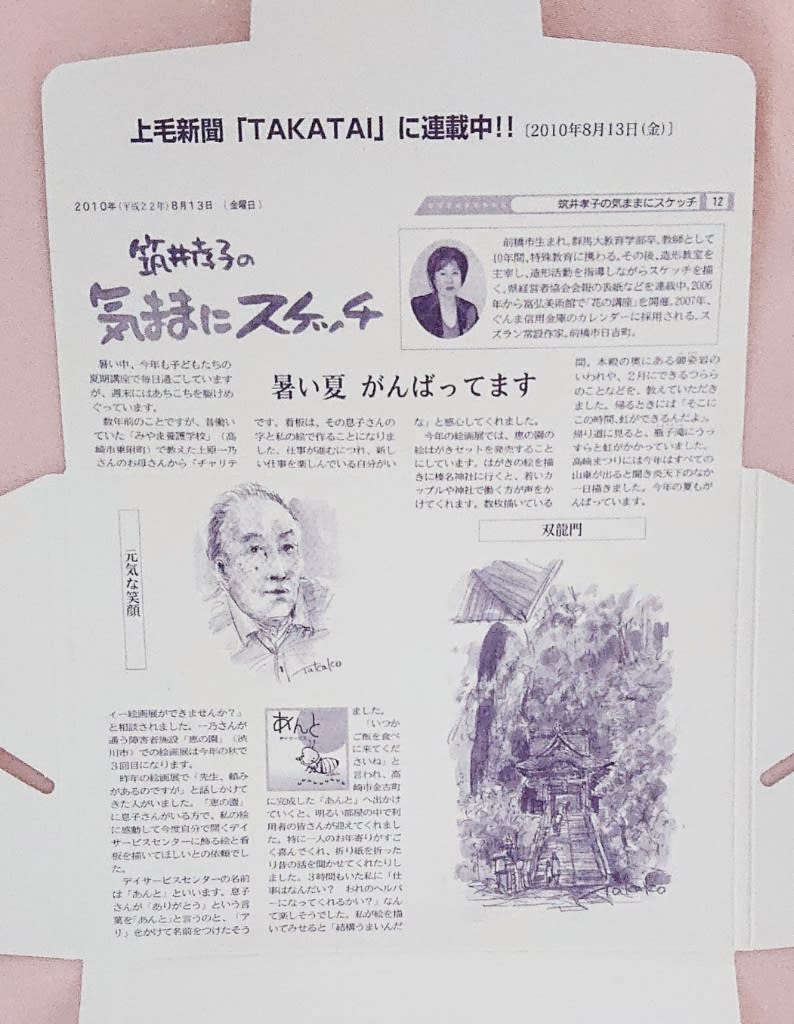 上毛新聞「TAKATAI」に連載中!! [2010年8月13日(金)]
2010年(平成22年)8月13日 (金曜日)
筑井孝子の気ままにスケッチ 12
筑井孝子の
気ままにスケッチ
前橋市生まれ。群馬大教育学部卒。教師として
10年間、特殊教育に携わる。その後、造形教室を
主宰し、造形活動を指導しながらスケッチを描
く。県経営者協会会報の表紙などを連載中。2006
年から富弘美術館で「花の講座」を開催。2007年、
ぐんま信用金庫のカレンダーに採用される。ス
ズラン常設作家。前橋市日吉町。
暑い夏 がんばってます
暑い中、今年も子どもたちの
夏期講座で毎日過ごしています
が、週末にはあちこちを駆けめ
ぐっています。
数年前のことですが、昔働い
ていた「みやま養護学校」(高
崎市東明町)で教えた上原一乃
さんのお母さんから「チャリテ
ィー絵画展ができませんか?」
と相談されました。一乃さんが
通う障害者施設「恵の園」(渋
川市)での絵画展は今年の秋で
3回目になります。
昨年の絵画展で「先生、頼み
があるのですが」と話しかけて
きた人がいました。「恵の園」
に息子さんがいる方で、私の絵
に感動して今度自分で開くデイ
サービスセンターに飾る絵と看
板を描いてほしいとの依頼でし
た。
デイサービスセンターの名前
は「あんと」といいます。息子
さんが「ありがとう」という言
葉を「あんと」と言うのと、「ア
リ」をかけて名前をつけたそう
です。看板は、その息子さんの
字と私の絵で作ることになりま
した。仕事が進むにつれ、新し
い仕事を楽しんでいる自分がい
ました。
「いつか
ご飯を食べ
に来てくだ
さいね」と
言われ、高
崎市金古町
に完成した「あんと」へ出かけ
ていくと、明るい部屋の中で利
用者の皆さんが迎えてくれまし
た。特に一人のお年寄りがすご
く喜んでくれ、折り紙を折った
り昔の話を聞かせてくれたりし
ました。3時間もいた私に「仕
事はなんだい? おれのヘルパ
ーになってくれるかい?」なん
て楽しそうでした。私が絵を描
いてみせると「結構うまいんだ
な」と感心してくれました。
今年の絵画展では、恵の園の
絵はがきセットを発売すること
にしています。はがきの絵を描
きに榛名神社に行くと、若いカ
ップルや神社で働く方が声をか
けてくれます。数枚描いている
間、本殿の奥にある御姿岩の
いわれや、2月にできるつらら
のことなどを、教えていただき
ました。帰るときには「そこに
この時間、虹ができるんだよ」。
帰り道に見ると、瓶子滝にうっ
すらと虹がかかっていました。
高崎まつりには今年はすべての
山車が出ると聞き炎天下のなか
一日描きました。今年の夏もが
んばっています。
元気な笑顔
Takako
あんと
双龍門
Takako